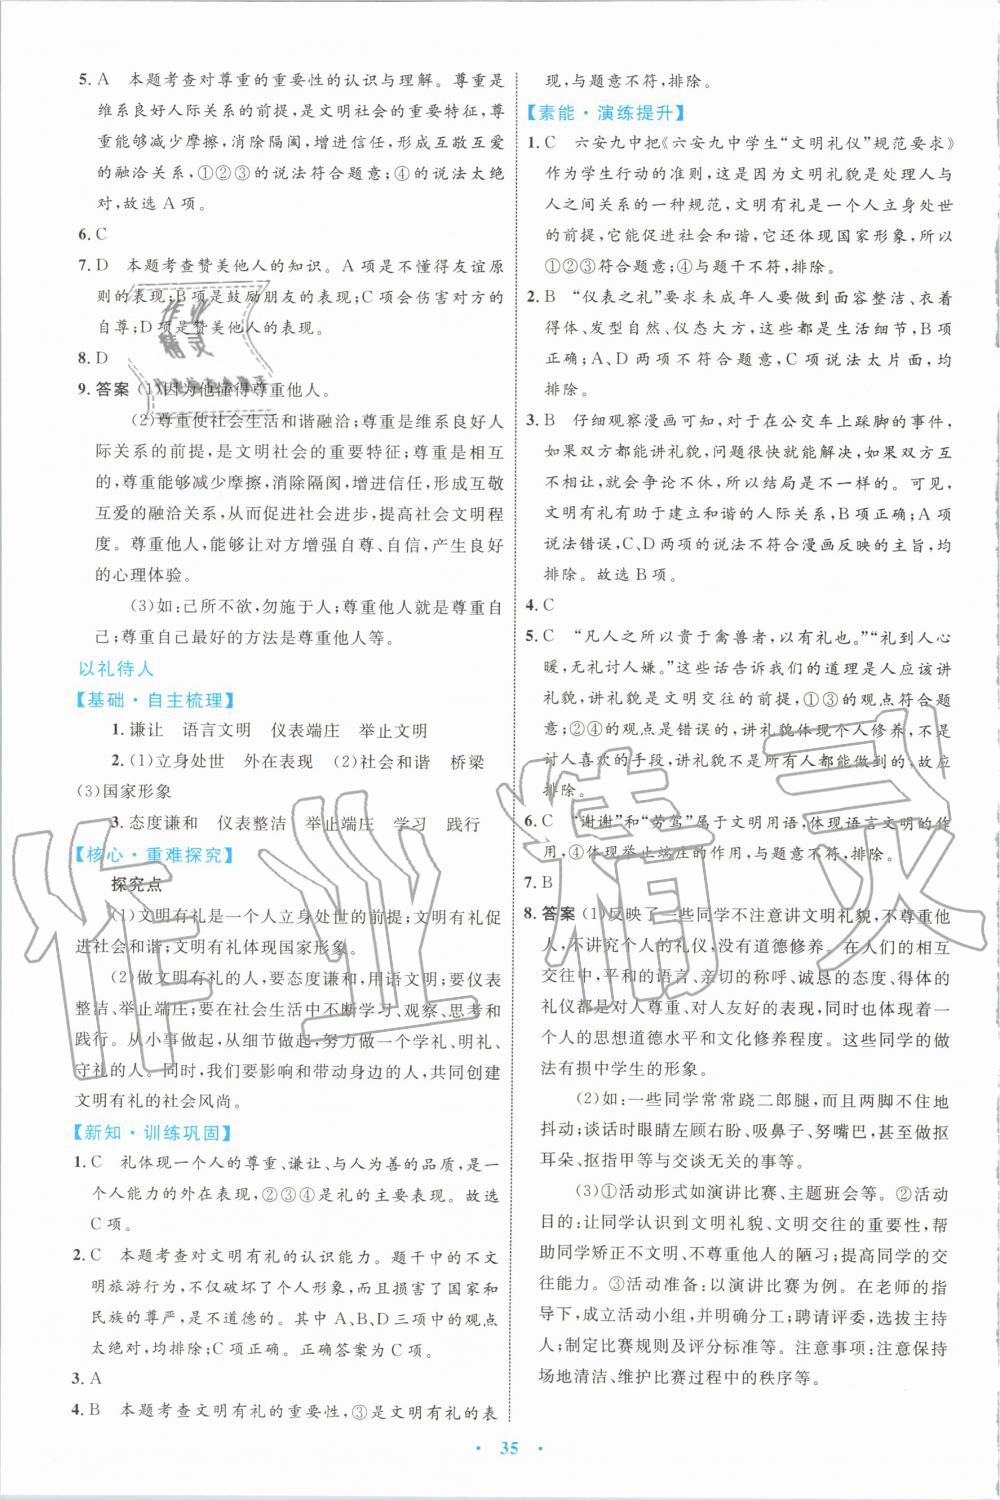 5. A　本题考查对尊重的重要性的认识与理解。尊重是
维系良好人际关系的前提,是文明社会的重要特征,尊重
能够减少摩擦,消除隔阂,增进信任,形成互敬互爱
的融洽关系,①②③的说法符合题意;④的说法太绝
对,故选 A 项。
6. C
7. D　本题考查赞美他人的知识。A 项是不懂得友谊原
则的表现;B 项是鼓励朋友的表现;C 项会伤害对方的
自尊;D 项是赞美他人的表现。
8. D
9. 答案　(1)因为他懂得尊重他人。
(2)尊重使社会生活和谐融洽;尊重是维系良好人
际关系的前提,是文明社会的重要特征;尊重
能够减少摩擦,消除隔阂,增进信任,形成互敬
互爱的融洽关系,从而促进社会进步,提高社会文明程
度。尊重他人,能够让对方增强自尊、自信,产生良好
的心理体验。
(3)如:己所不欲,勿施于人;尊重他人就是尊重自
己;尊重自己最好的方法是尊重他人等。
以礼待人
【基础·自主梳理】
1. 谦让　语言文明　仪表端庄　举止文明
2. (1)立身处世　外在表现　(2)社会和谐　桥梁
(3)国家形象
3. 态度谦和　仪表整洁　举止端庄　学习　践行
【核心·重难探究】
探究点
(1)文明有礼是一个人立身处世的前提;文明有礼促
进社会和谐;文明有礼体现国家形象。
(2)做文明有礼的人,要态度谦和,用语文明;要仪表
整洁、举止端庄;要在社会生活中不断学习、观察、思考和
践行。从小事做起,从细节做起,努力做一个学礼、明礼、
守礼的人。同时,我们要影响和带动身边的人,共同创建
文明有礼的社会风尚。
【新知·训练巩固】
1. C　礼体现一个人的尊重、谦让、与人为善的品质,是一
个人能力的外在表现,②③④是礼的主要表现。故选
C 项。
2. C　本题考查对文明有礼的认识能力。题干中的不文
明旅游行为,不仅破坏了个人形象,而且损害了国家和
民族的尊严,是不道德的。其中 A、B、D 三项中的观点
太绝对,均排除;C 项正确。正确答案为 C 项。
3. A
4. B　本题考查文明有礼的重要性,③是文明有礼的表
现,与题意不符,排除。
【素能·演练提升】
1. C　六安九中把《六安九中学生“文明礼仪”规范要求》
作为学生行动的准则,这是因为文明礼貌是处理人与
人之间关系的一种规范,文明有礼是一个人立身处世
的前提,它能促进社会和谐,它还体现国家形象,所以
①②③符合题意;④与题干不符,排除。
2. B　“仪表之礼”要求未成年人要做到面容整洁、衣着
得体、发型自然、仪态大方,这些都是生活细节,B 项
正确;A、D 两项不符合题意,C 项说法太片面,均
排除。
3. B　仔细观察漫画可知,对于在公交车上踩脚的事件,
如果双方都能讲礼貌,问题很快就能解决,如果双方互
不相让,就会争论不休,所以结局是不一样的。可见,
文明有礼有助于建立和谐的人际关系,B 项正确;A 项
说法错误,C、D 两项的说法不符合漫画反映的主旨,均
排除。故选 B 项。
4. C
5. C　“凡人之所以贵于禽兽者,以有礼也。”“礼到人心
暖,无礼讨人嫌。”这些话告诉我们的道理是人应该讲
礼貌,讲礼貌是文明交往的前提,①③的观点符合题
意;②④的观点是错误的,讲礼貌体现个人修养,不是
讨人喜欢的手段,讲礼貌要真诚,不是无原则的,故应
排除。
6. C　“谢谢”和“劳驾”属于文明用语,体现语言文明的作
用,④体现举止端庄的作用,与题意不符,排除。
7. B
8. 答案　(1)反映了一些同学不注意讲文明礼貌,不尊重他
人,不讲究个人的礼仪,没有道德修养。在人们的相互
交往中,平和的语言、亲切的称呼、诚恳的态度、得体的
礼仪都是对人尊重、对人友好的表现,同时也体现出一
个人的思想道德水平和文化修养程度。这些同学的做
法有损中学生的形象。
(2)如:一些同学常常跷二郎腿,而且两脚不住地
抖动;谈话时眼睛左顾右盼、吸鼻子、努嘴巴,甚至做抠
耳朵、抠指甲等与交谈无关的事等。
(3)①活动形式如演讲比赛、主题班会等。②活动
目的:让同学认识到文明礼貌、文明交往的重要性,帮
助同学矫正不文明、不尊重他人的陋习;提高同学的交
往能力。③活动准备:以演讲比赛为例。在老师的指
导下,成立活动小组,并明确分工;聘请评委,选拔主持
人;制定比赛规则及评分标准等。注意事项:注意保持
场地清洁、维护比赛过程中的秩序等。
· 35 ·
作业精灵